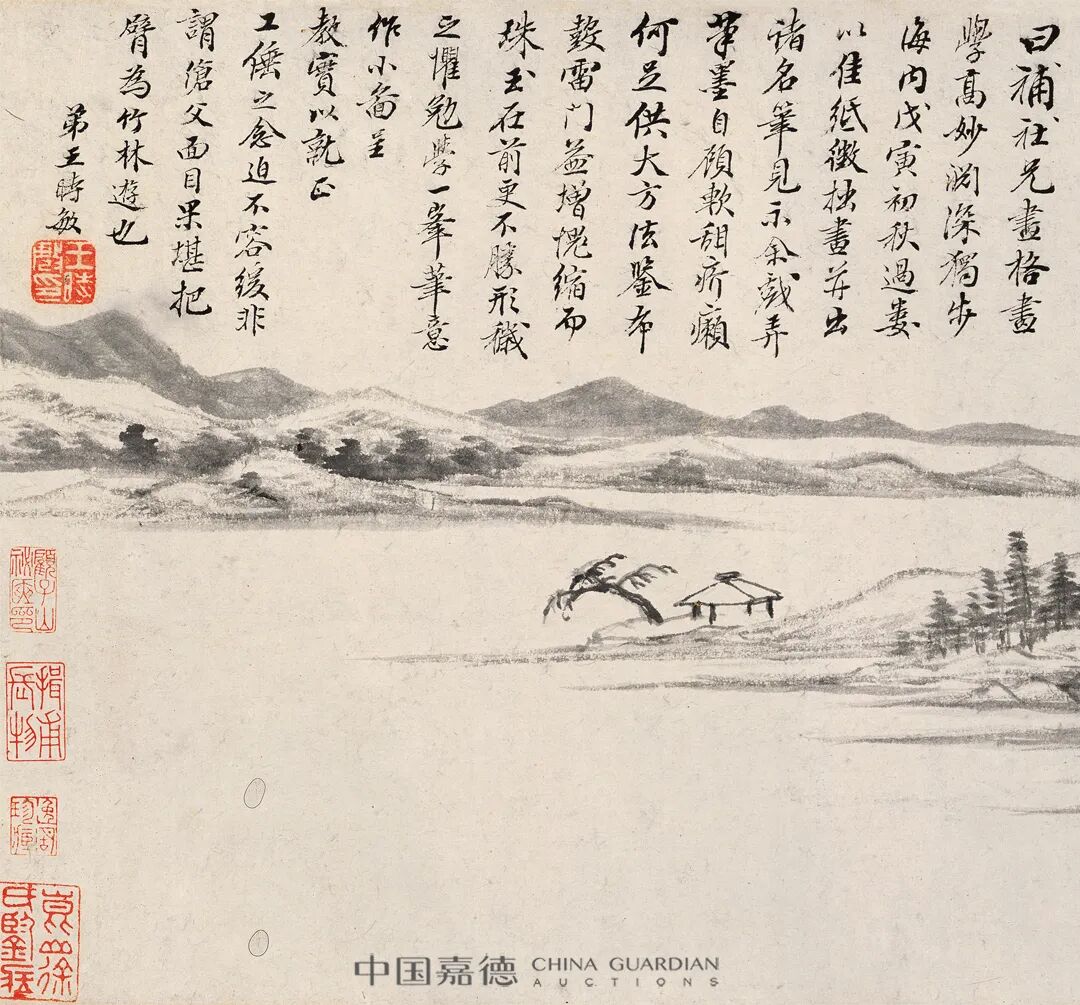 曰補社兄畫格畫
學高妙淵深獨步
海内戊寅初秋過婁
以佳紙徵拙畫并出
諸名筆見示余戲弄
筆墨自顧軟甜疥癩
何足供大方法鑒布
鼓雷門益增愧縮而
珠玉在前更不勝形穢
之懼勉學一峯筆意
作小圖呈
教實以就正
工倕之念迫不容緩非
謂滄父面目果堪把
臂為竹林遊也
弟王時敏
王時敏印
顧子山
中国嘉德 CHINA GUARDIAN
AUCTIONS